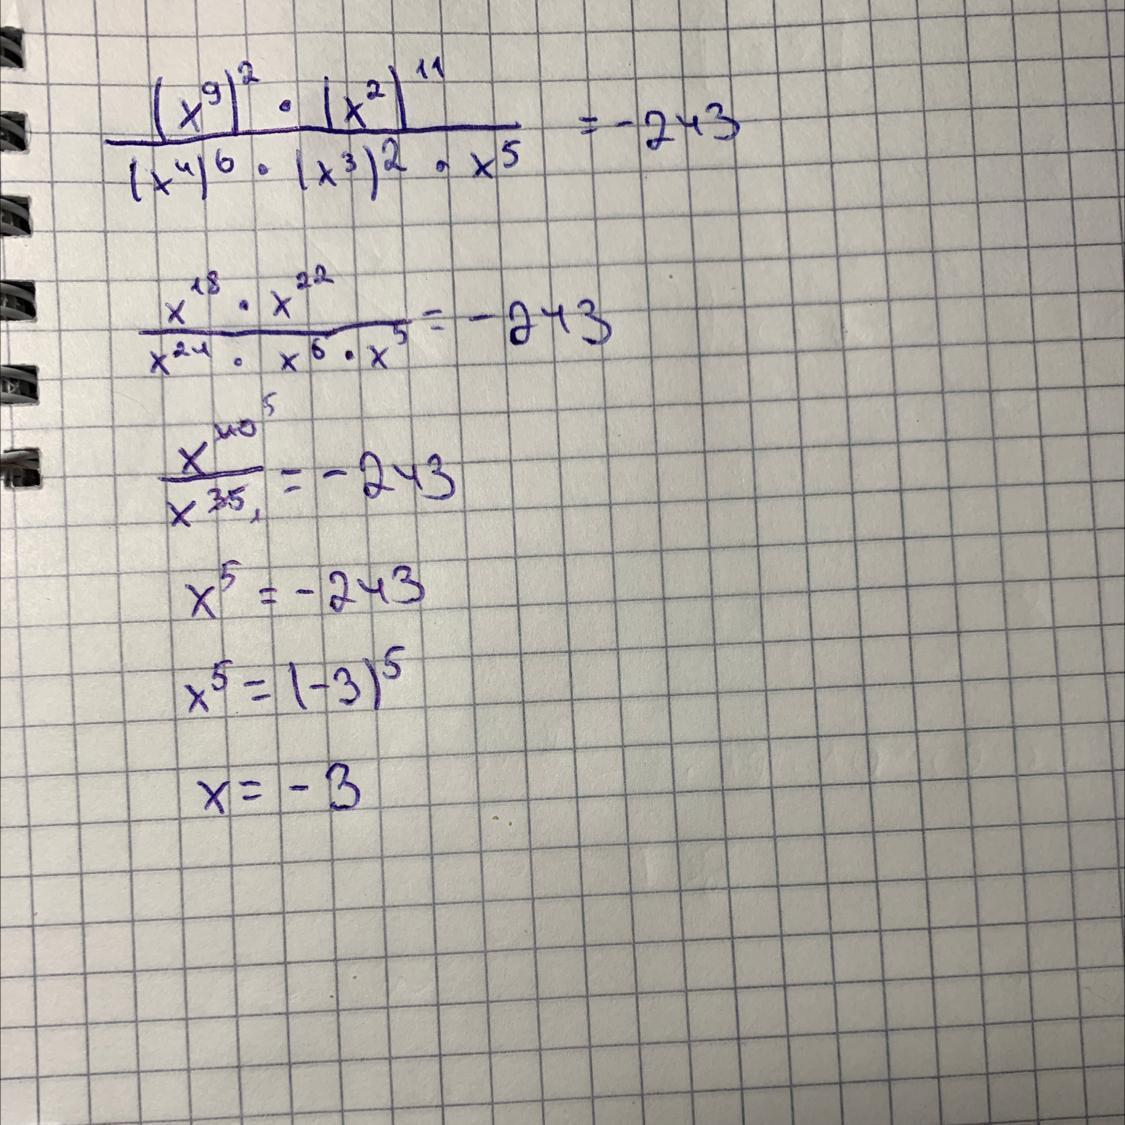 (x⁹)² · (x²)¹¹ / (x⁴)⁶ · (x³)² · x⁵ = -243
x¹⁸ · x²² / x²⁴ · x⁶ · x⁵ = -243
x⁴⁰ ⁵ / x³⁵ = -243
x⁵ = -243
x⁵ = (-3)⁵
x = -3